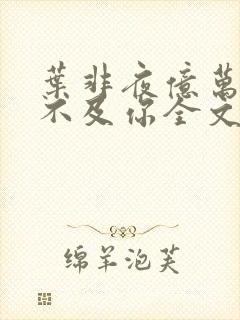 葉非夜億萬
不及你全文
绵羊泡芙